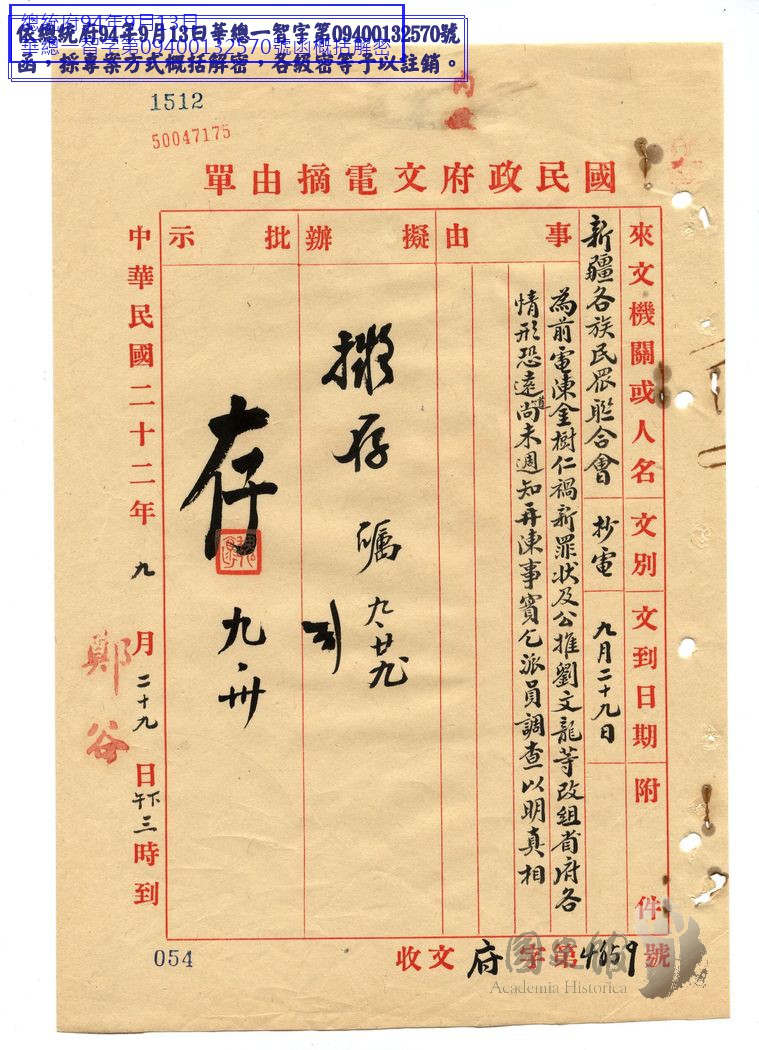 總統府94年9月13日
華總一智字第09400132570號函概括解密
依總統府94年9月13日華總一智字第09400132570號
函，採專案方式概括解密，各級密等予以註銷。
1512
50047175
單由摘電文府政民國
來文機關或人名
新疆各族民眾聯合會
文別
抄電
文到日期
九月二十九日
附件
事由
為前電陳金樹仁禍新罪狀及公推劉文龍等改組省府各
情形恐遠道尚未週知再陳事實乞派員調查以明真相
擬辦
擬存
九、廿九
批示
存
九、卅
中華民國二十二年九月二十九日下午三時到
鄭谷
收文府字第4859號
054
國史館
Academia Historica